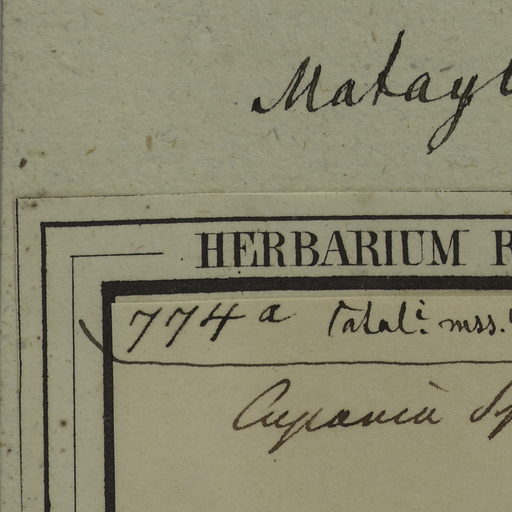 Matay
HERBARIUM
774a Catal: mss.
Cupania Sp